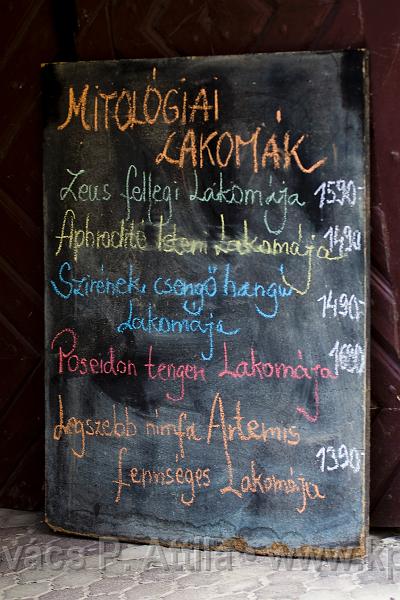 MITOLÓGIAI
LAKOMÁK
Zeus fellegi Lakomája 1590-
Aphrodité Isteni Lakomája 1490
Szirének csengő hangú 1490-
Lakomája
Poseidon tengeri Lakomája 1690
Legszebb nimfa Artemis
fennséges Lakomája 1390-
vács P. Attila - www.kp